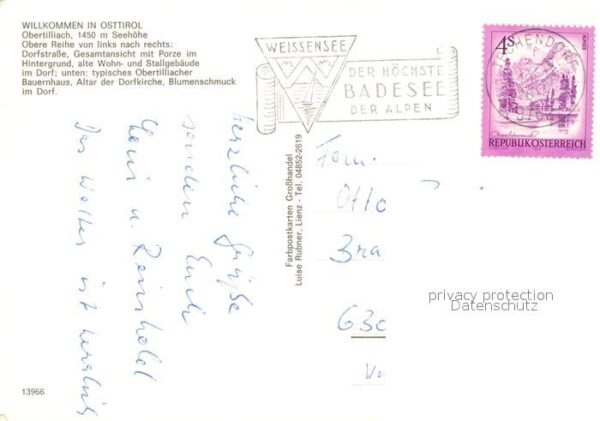 WILLKOMMEN IN OSTTIROL
Obertilliach, 1450 m Seehöhe
Obere Reihe von links nach rechts:
Dorfstraße, Gesamtansicht mit Porze im
Hintergrund, alte Wohn- und Stallgebäude
im Dorf; unten: typisches Obertilliacher
Bauernhaus, Altar der Dorfkirche, Blumenschmuck
im Dorf.
WEISSENSEE
DER HÖCHSTE
BADESEE
DER ALPEN
4S
REPUBLIK ÖSTERREICH
herzliche Grüße
senden Euch
u. Reinhold
das Wetter ist herrlich
Farbpostkarten Großhandel
Luise Rubner, Lienz - Tel. 04852-2619
Fam.
Otto
Bra
63c
privacy protection
Datenschutz
13966